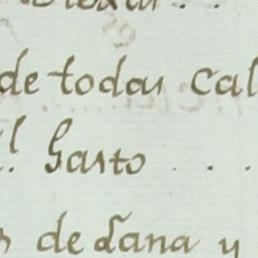 de todas Cal
el Gasto . .
de dana y